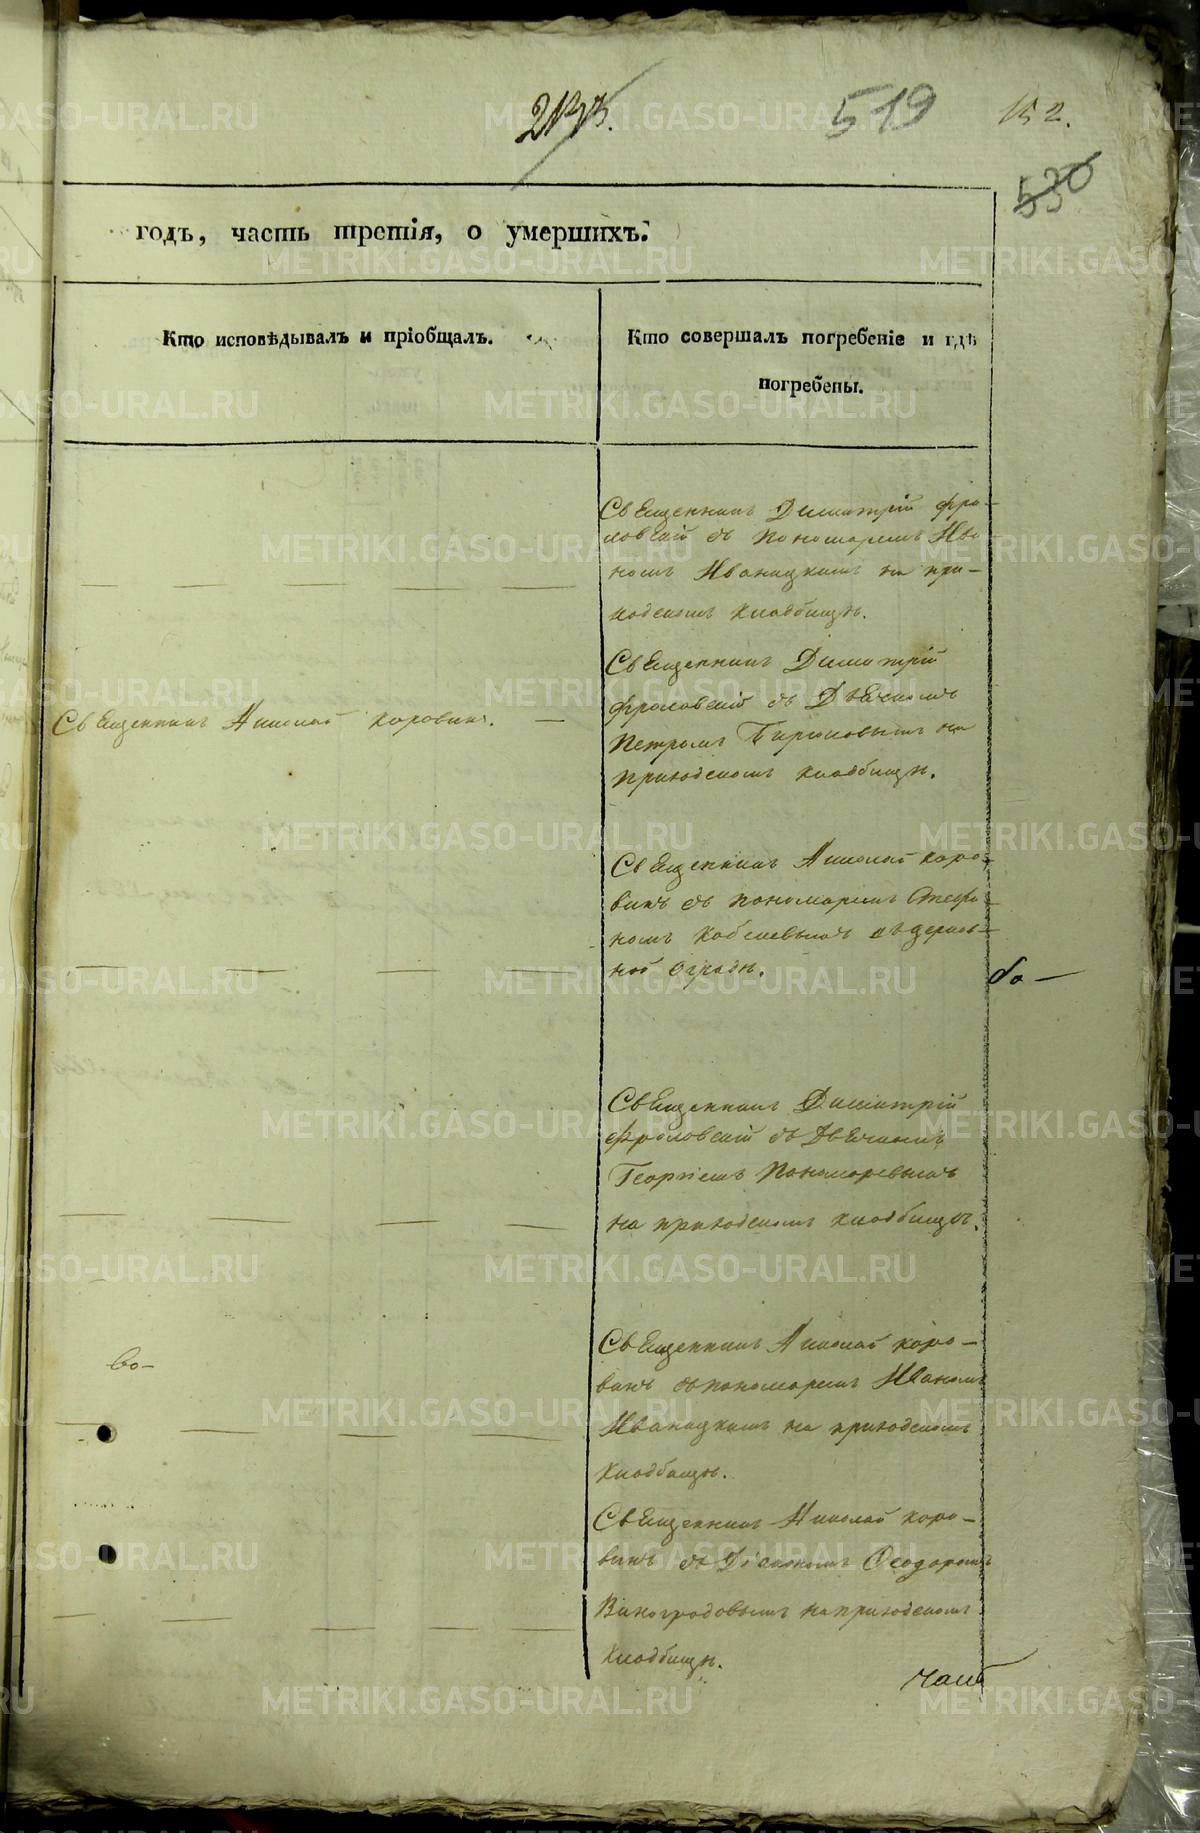 519
152.
530
годъ, часть третія, о умершихъ.
Кто исповѣдывалъ и пріобщалъ.
Кто совершалъ погребеніе и гдѣ
погребены.
Священникъ Димитрій Фро-
ловскій съ пономаремъ Ива
номъ Иваницкимъ на при-
ходскомъ кладбищѣ.
Священникъ Николай Коровинъ. —
Священникъ Димитрій
Фроловскій съ Дьячкомъ
Петромъ на
приходскомъ кладбищѣ.
Священникъ Николай Коро-
винъ съ пономаремъ Стефа-
номъ Кобелевымъ въ церков-
ной оградѣ.
Священникъ Димитрій
Фроловскій съ Дьячкомъ
Георгіемъ Пономаревымъ
на приходскомъ кладбищѣ.
Священникъ Николай Коро-
винъ съ пономаремъ Иваномъ
Иваницкимъ на приходскомъ
кладбищѣ.
Священникъ Николай Коро-
винъ съ Діакономъ Ѳеодоромъ
Виноградовымъ на приходскомъ
кладбищѣ.
METRIKI.GASO-URAL.RU